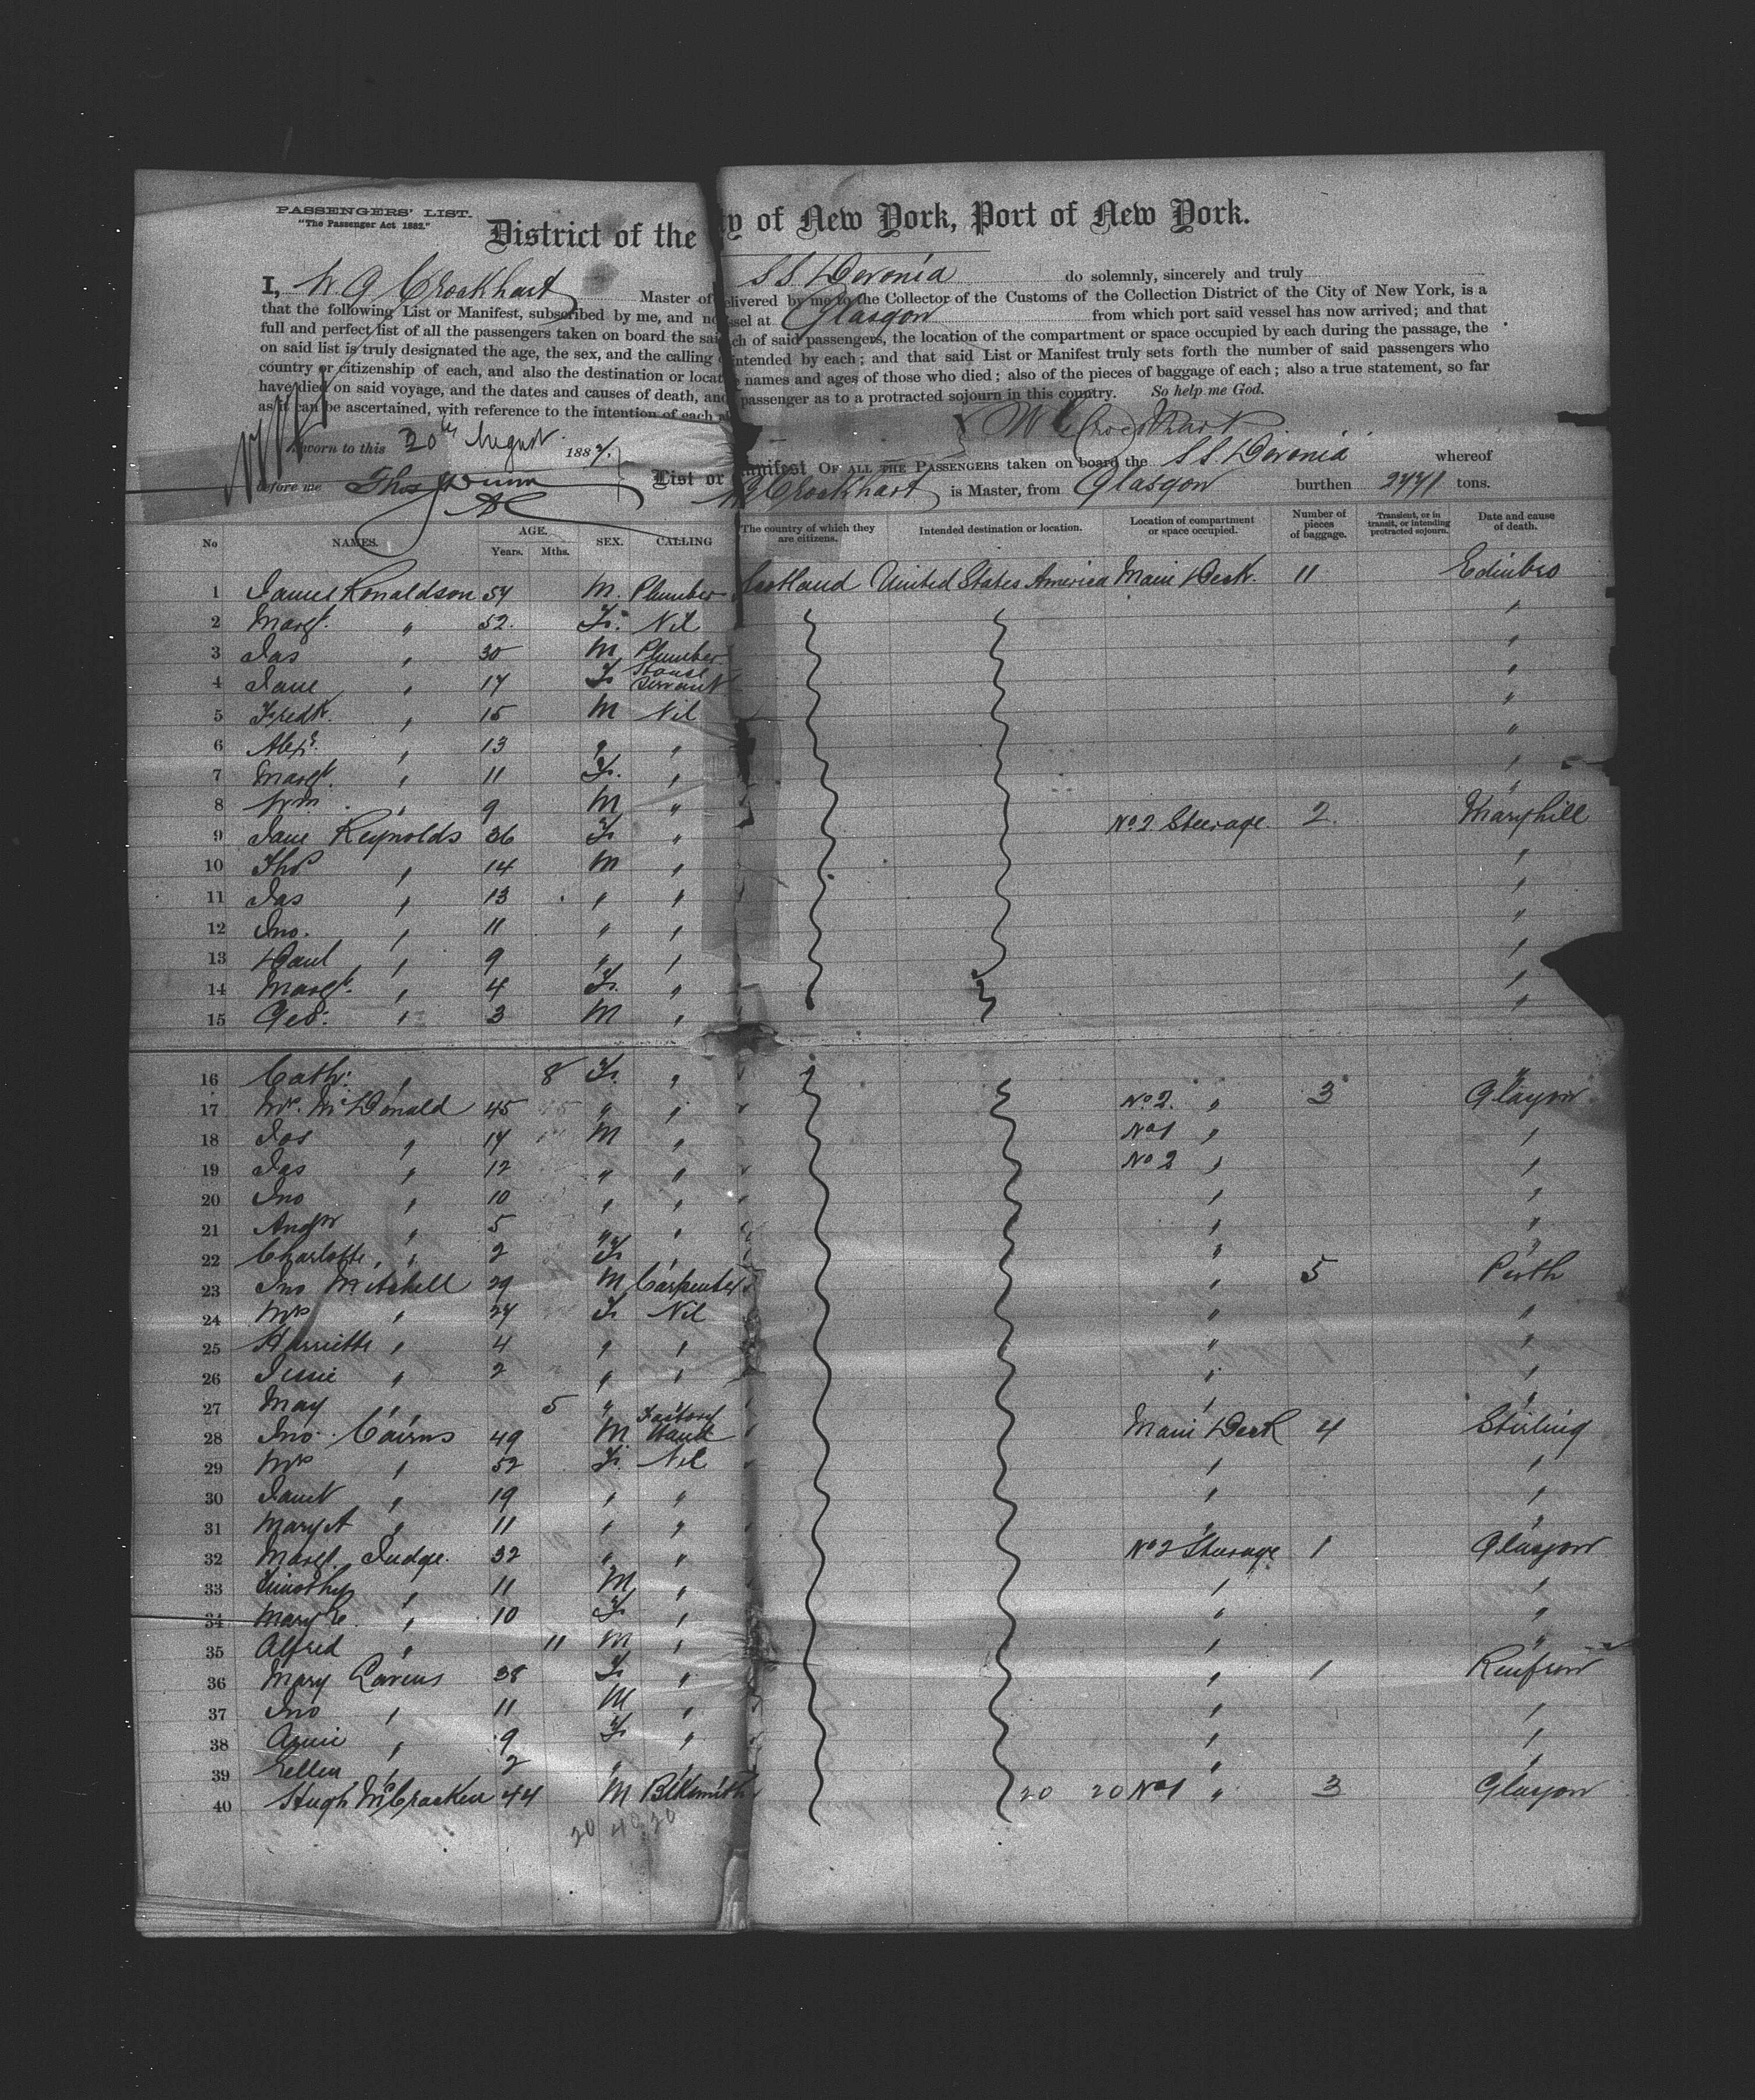 PASSENGERS' LIST.
"The Passenger Act 1882."
District of the ty of New York, Port of New York.
I, W. G Crockhart Master of SS Devonia do solemnly, sincerely and truly
that the following List or Manifest, subscribed by me, and no elivered by me to the Collector of the Customs of the Collection District of the City of New York, is a
full and perfect list of all the passengers taken on board the sai ssel at Glasgow from which port said vessel has now arrived; and that
on said list is truly designated the age, the sex, and the calling ch of said passengers, the location of the compartment or space occupied by each during the passage, the
country or citizenship of each, and also the destination or locat intended by each; and that said List or Manifest truly sets forth the number of said passengers who
have died on said voyage, and the dates and causes of death, and names and ages of those who died; also of the pieces of baggage of each; also a true statement, so far
as it can be ascertained, with reference to the intention of each passenger as to a protracted sojourn in this country. So help me God.
W G Crockhart
Sworn to this 20th August 1887.
before me Thos Dunn
List or anifest OF ALL THE PASSENGERS taken on board the SS Devonia whereof
W G Crockhart is Master, from Glasgow burthen 2771 tons.
No NAMES. AGE. Years. Mths. SEX. CALLING The country of which they are citizens. Intended destination or location. Location of compartment or space occupied. Number of pieces of baggage. Transient, or in transit, or intending protracted sojourn. Date and cause of death.
1 James Ronaldson 54 M. Plumber Scotland United States America Main Deck. 11 Edinbro
2 Margt. " 52. F. Nil "
3 Jas " 30 M Plumber "
4 Jane " 17 F House Servant "
5 Fredk. " 15 M Nil "
6 Alexr. " 13 " " "
7 Margt. " 11 F. " "
8 Wm. " 9 M " "
9 Jane Reynolds 36 F " No 2 Steerage. 2. Maryhill
10 Thos " 14 M " "
11 Jas " 13 " " "
12 Jno. " 11 " " "
13 Danl " 9 " " "
14 Margt. " 4 F. " "
15 Geo. " 3 M " "
16 Cath. " 8 F. " "
17 Mrs. McDonald 45 " " No 2. " 3 Glasgow
18 Jos " 17 M " No 1 " "
19 Jas " 12 " " No 2 " "
20 Jno " 10 " " " "
21 Andw " 5 " " " "
22 Charlotte " 2 F " " "
23 Jno Mitchell 29 M Carpenter " 5 Perth
24 Mrs " 27 F Nil " "
25 Harriette " 4 " " " "
26 Jessie " 2 " " " "
27 May " 5 " " "
28 Jno. Cairns 49 M Factory Hand Main Deck 4 Stirling
29 Mrs " 52 F. Nil " "
30 Janet " 19 " " " "
31 Mary A " 11 " " " "
32 Margt. Judge. 32 " " No 2 Steerage 1 Glasgow
33 Timothy " 11 M " " "
34 Mary E. " 10 F " " "
35 Alfred " 11 M " " "
36 Mary Cavens 38 F " " 1 Renfrew
37 Jno " 11 M " "
38 Annie " 9 F " " "
39 Ellen " 2 " " " "
40 Hugh McCracken 44 M Blksmith 20 20 No 1 " 3 Glasgow
20 40 20